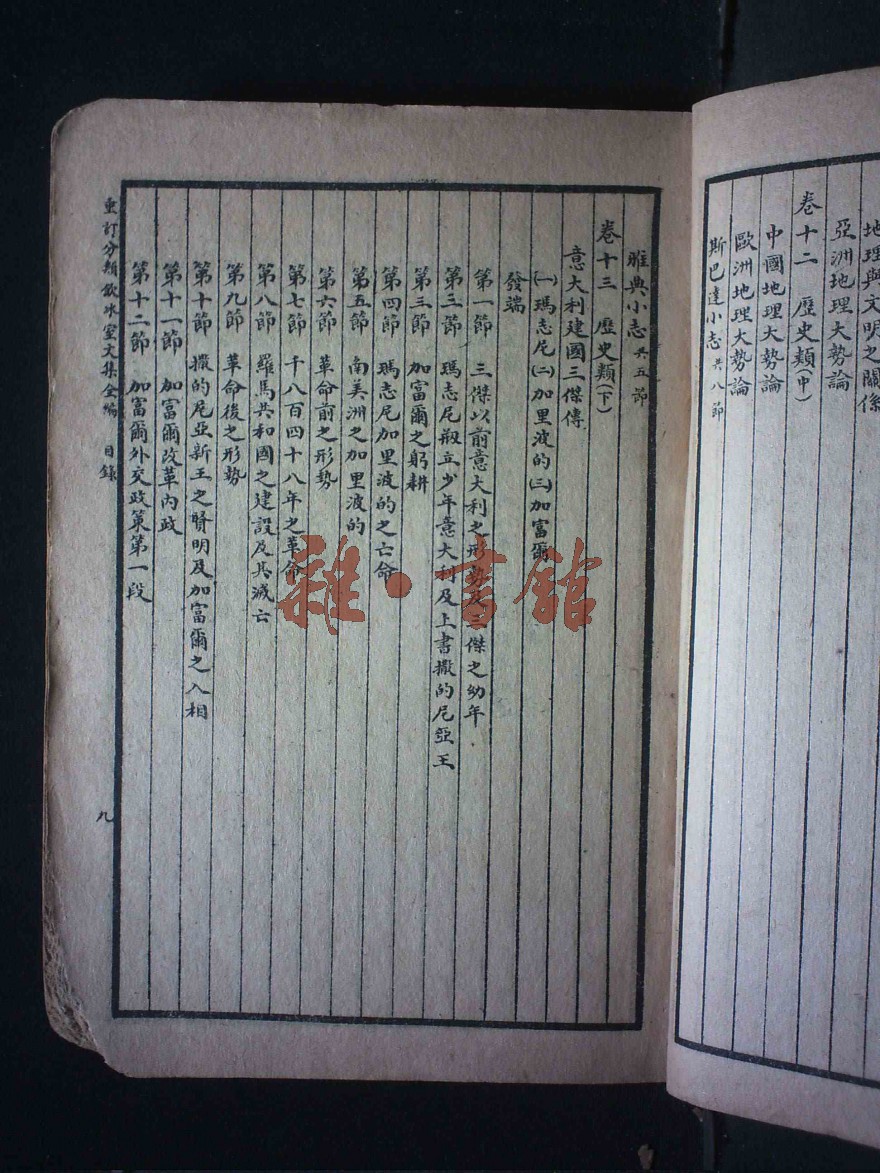 地理與文明之關係
亞洲地理大勢論
卷十二 歷史類(中)
中國地理大勢論
歐洲地理大勢論
斯巴達小志 共八節
雅典小志 共五節
卷十三 歷史類(下)
意大利建國三傑傳
(一)瑪志尼(二)加里波的(三)加富爾
發端
第一節 三傑以前意大利之形勢及三傑之幼年
第二節 瑪志尼剏立少年意大利及上書撒的尼亞王
第三節 加富爾之躬耕
第四節 瑪志尼加里波的之亡命
第五節 南美洲之加里波的
第六節 革命前之形勢
第七節 千八百四十八年之革命
第八節 羅馬共和國之建設及其滅亡
第九節 革命後之形勢
第十節 撒的尼亞新王之賢明及加富爾之入相
第十一節 加富爾改革內政
第十二節 加富爾外交政策第一段
重訂分類飲冰室文集全編 目錄 九
雜·書館